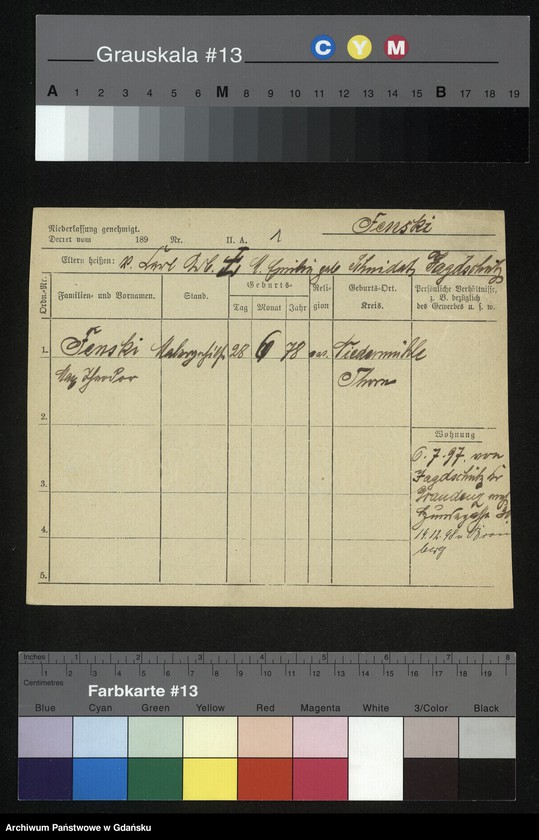 Grauskala #13
C Y M
A 1 2 3 4 5 6 M 8 9 10 11 12 13 14 15 B 17 18 19
Fenski
Niederlassung genehmigt.
Decret vom 189 Nr. II. A. 1
Eltern heißen: v. Carl M. Emilie geb. Schmidt, Jagdschütz
Ordn.-Nr.
Familien- und Vornamen.
Stand.
Geburts-
Tag Monat Jahr
Reli-
gion
Geburts-Ort.
Kreis.
Persönliche Verhältnisse,
z. B. bezüglich
des Gewerbes u. s. w.
1. Fenski Malergehilfe 28 6 78 ev. Niedermühle
Max Theodor Thorn
2.
Wohnung
6.7.97. von
Jagdschütz
Graudenz
3.
14.12.98 Brom
berg
4.
5.
Inches 1 2 3 4 5 6 7 8
1 2 3 4 5 6 7 8 9 10 11 12 13 14 15 16 17 18 19
Centimetres
Farbkarte #13
Blue Cyan Green Yellow Red Magenta White 3/Color Black
Archiwum Państwowe w Gdańsku